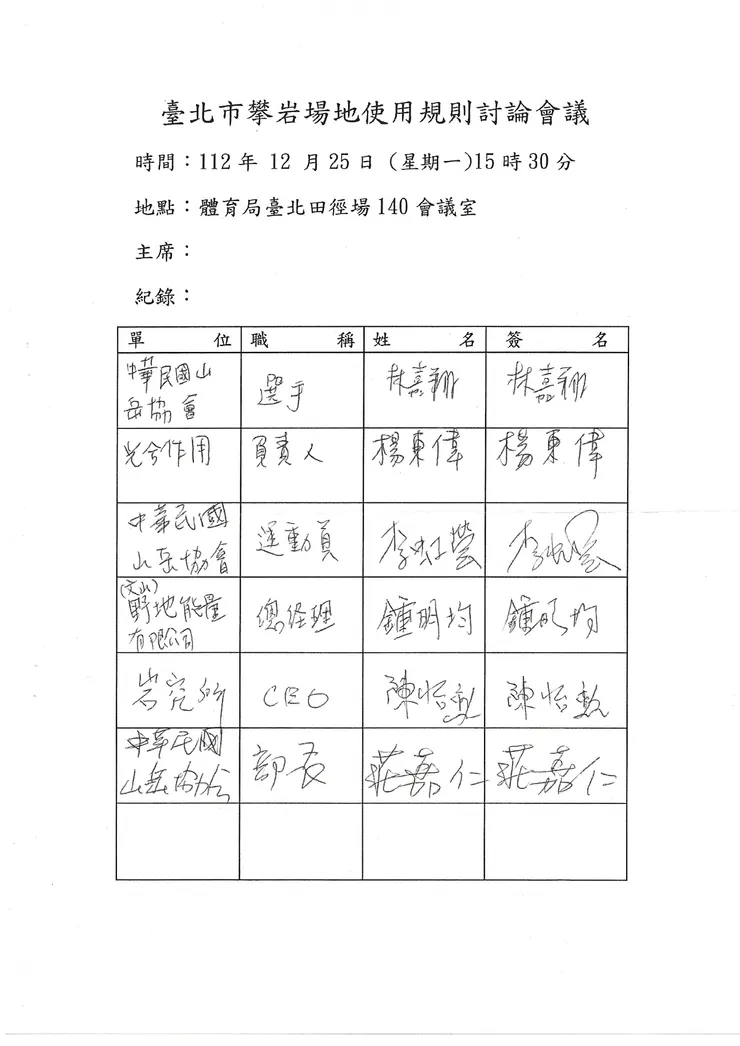 臺北市攀岩場地使用規則討論會議
時間：112 年 12 月 25 日 (星期一)15 時 30 分
地點：體育局臺北田徑場 140 會議室
主席：
紀錄：
單位 職稱 姓名 簽名
中華民國山
岳協會 選手 林嘉翔 林嘉翔
光合作用 負責人 楊東偉 楊東偉
中華民國
山岳協會 運動員 李虹瑩
(文山)
野地能量
有限公司 總經理 鍾明均 鍾明均
岩究所 CEO 陳怡 陳怡
中華民國
山岳協会 部長 莊嘉仁 莊嘉仁